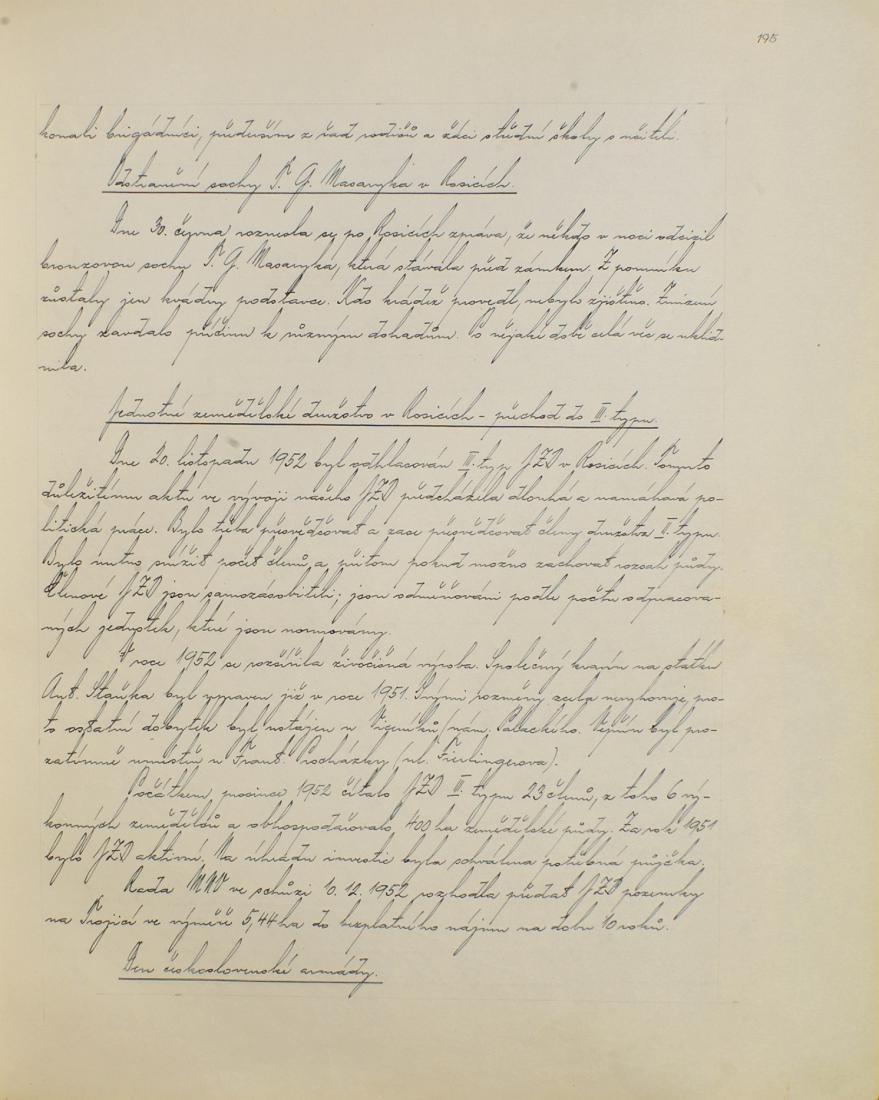 195
konali brigádníci, především z řad rodičů a žáci střední školy s učiteli.
Odstranění sochy T. G. Masaryka v Rosicích.
Dne 30. června roznesla se po Rosicích zpráva, že někdo v noci odcizil
bronzovou sochu T. G. Masaryka, která stávala před zámkem. Z pomníku
zůstaly jen kvádry podstavce. Kdo krádež provedl, nebylo zjištěno. Zmizení
sochy zavdalo příčinu k různým dohadům. Po nějaké době celá věc se uklid-
nila.
Jednotné zemědělské družstvo v Rosicích - přechod do III. typu.
Dne 20. listopadu 1952 byl odhlasován III. typ JZD v Rosicích. Tomuto
důležitému aktu ve vývoji našeho JZD předcházela dlouhá a namáhavá po-
litická práce. Bylo třeba přesvědčovat a zase přesvědčovat členy družstva II. typu.
Bylo nutno snížit počet členů a přitom pokud možno zachovat rozsah půdy.
Členové JZD jsou samozásobiteli; jsou odměňováni podle počtu odpracova-
ných jednotek, které jsou normovány.
V roce 1952 se rozšířila živočišná výroba. Společný kravín na statku
Ant. Staňka byl upraven již v roce 1951. Svými rozměry zcela nevyhovuje, pro-
to ostatní dobytek byl ustájen u Vičeníků (nám. Palackého. Vepřín byl pro-
zatímně umístěn u Frant. Procházky (ul. Fierlingerova).
Počátkem prosince 1952 čítalo JZD III. typu 23 členů, z toho 6 vý-
konných zemědělců a obhospodařovalo 400 ha zemědělské půdy. Za rok 1951
bylo JZD aktivní. Na úhradu investic byla schválena potřebná půjčka.
Rada MNV ve schůzi 10. 12. 1952 rozhodla předat JZD pozemky
na Trojici ve výměře 5,44 ha do bezplatného nájmu na dobu 10 roků.
Den československé armády.